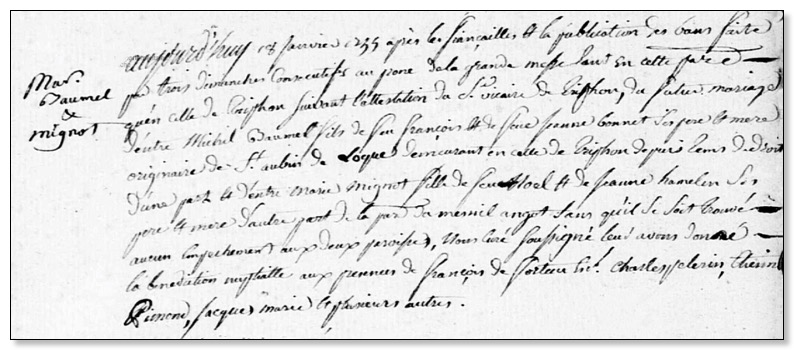 Mar.
Baumel
&
mignot
aujourd'huy 18 janvier 1755 après les fiançailles et la publication des bans faite
par trois dimanches consecutifs au prone de la grande messe tant en cette par.e
qu'en celle de suivant l'attestation du Sr vicaire de du futur mariage
d'entre Michel Baumel fils de feu françois et de feue jeanne bonnet ses pere et mere
originaire de St. aubin de Loque demeurant en celle de depuis tems de droit
d'une part et d'entre marie mignot fille de feu Noel et de jeanne hamelin ses
pere et mere d'autre part de la par. du mesnil angot sans qu'il se soit trouvé
aucun empechement aux deux paroisses, Nous curé soussigné leur avons donné
la benediction nuptialle aux presences de françois de charles pelerin, Etienne
Simon, jacques marie et plusieurs autres.